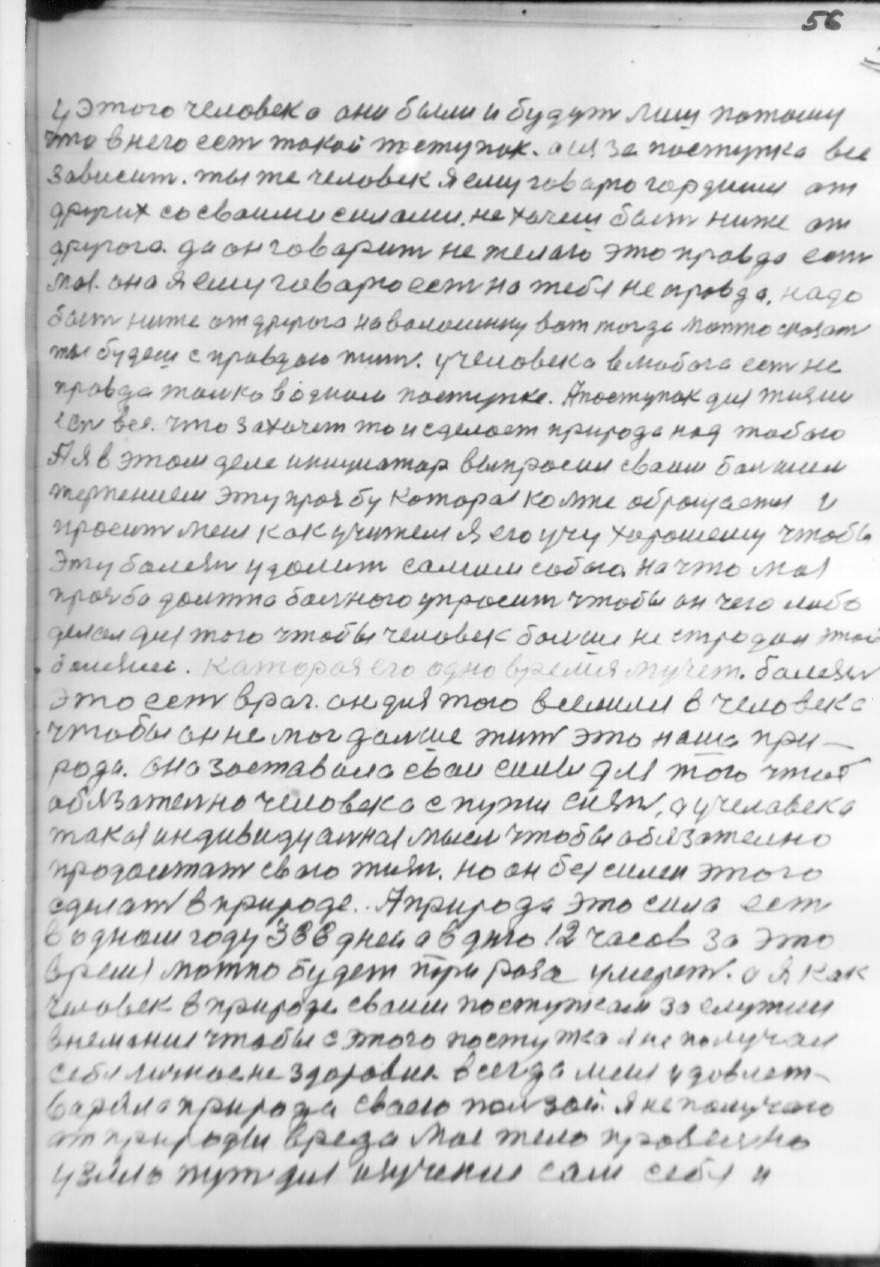 56
у этого человека они были и будут лиш потому
что внего ест такой поступок. аиз за поступка все
зависит. ты же человек я ему говарю гордиши от
других со своими силами. не хочеш быт ниже от
другога. да он говарит не желаю это правда ест
мая. она я ему говарю ест на тебя не правда, надо
быт ниже от другога на валосинку вот тогда можно сказат
ты будеш с правдаю жит. у человека влюбога ест не
правда толко водном поступке. А поступок для жизни
ест все. что захочет то и сделает природа над табою
А я в этом деле инициатор выпросил своим болшим
терпением эту прозбу которая комне обращается и
просит меня как учителя я его учу хорошему чтобы
эту болезн удолит самим собою. на что мая
прозба должна болного упросит чтобы он чего либо
делал для того чтобы человек болши не страдал этой
болезнею. Катораяего одно время мучет. болезн
это ест враг. он для того вселился в человека
чтобы он не мог далше жит это наша при-
рода. она заставила сваи силы для того чтоб
обязателно человека с пути снят, а учеловека
такая индивидуалная мысл чтобы обязателно
продолжат сваю жизн. но он безсилен этого
сделат в природе. А природа это сила ест
в одном году 366 дней а вдню 12 часов за это
время можно будет три раза умерет. а я как
человек в природе своим поступкам заслужил
внемания чтобы с этого поступка я не получал
себе личное не здоровия. всегда меня удовлет-
варяла природа сваею ползой. я не получаю
от природы вреда мое тело провелно
узяло пут для изучения сам себя и